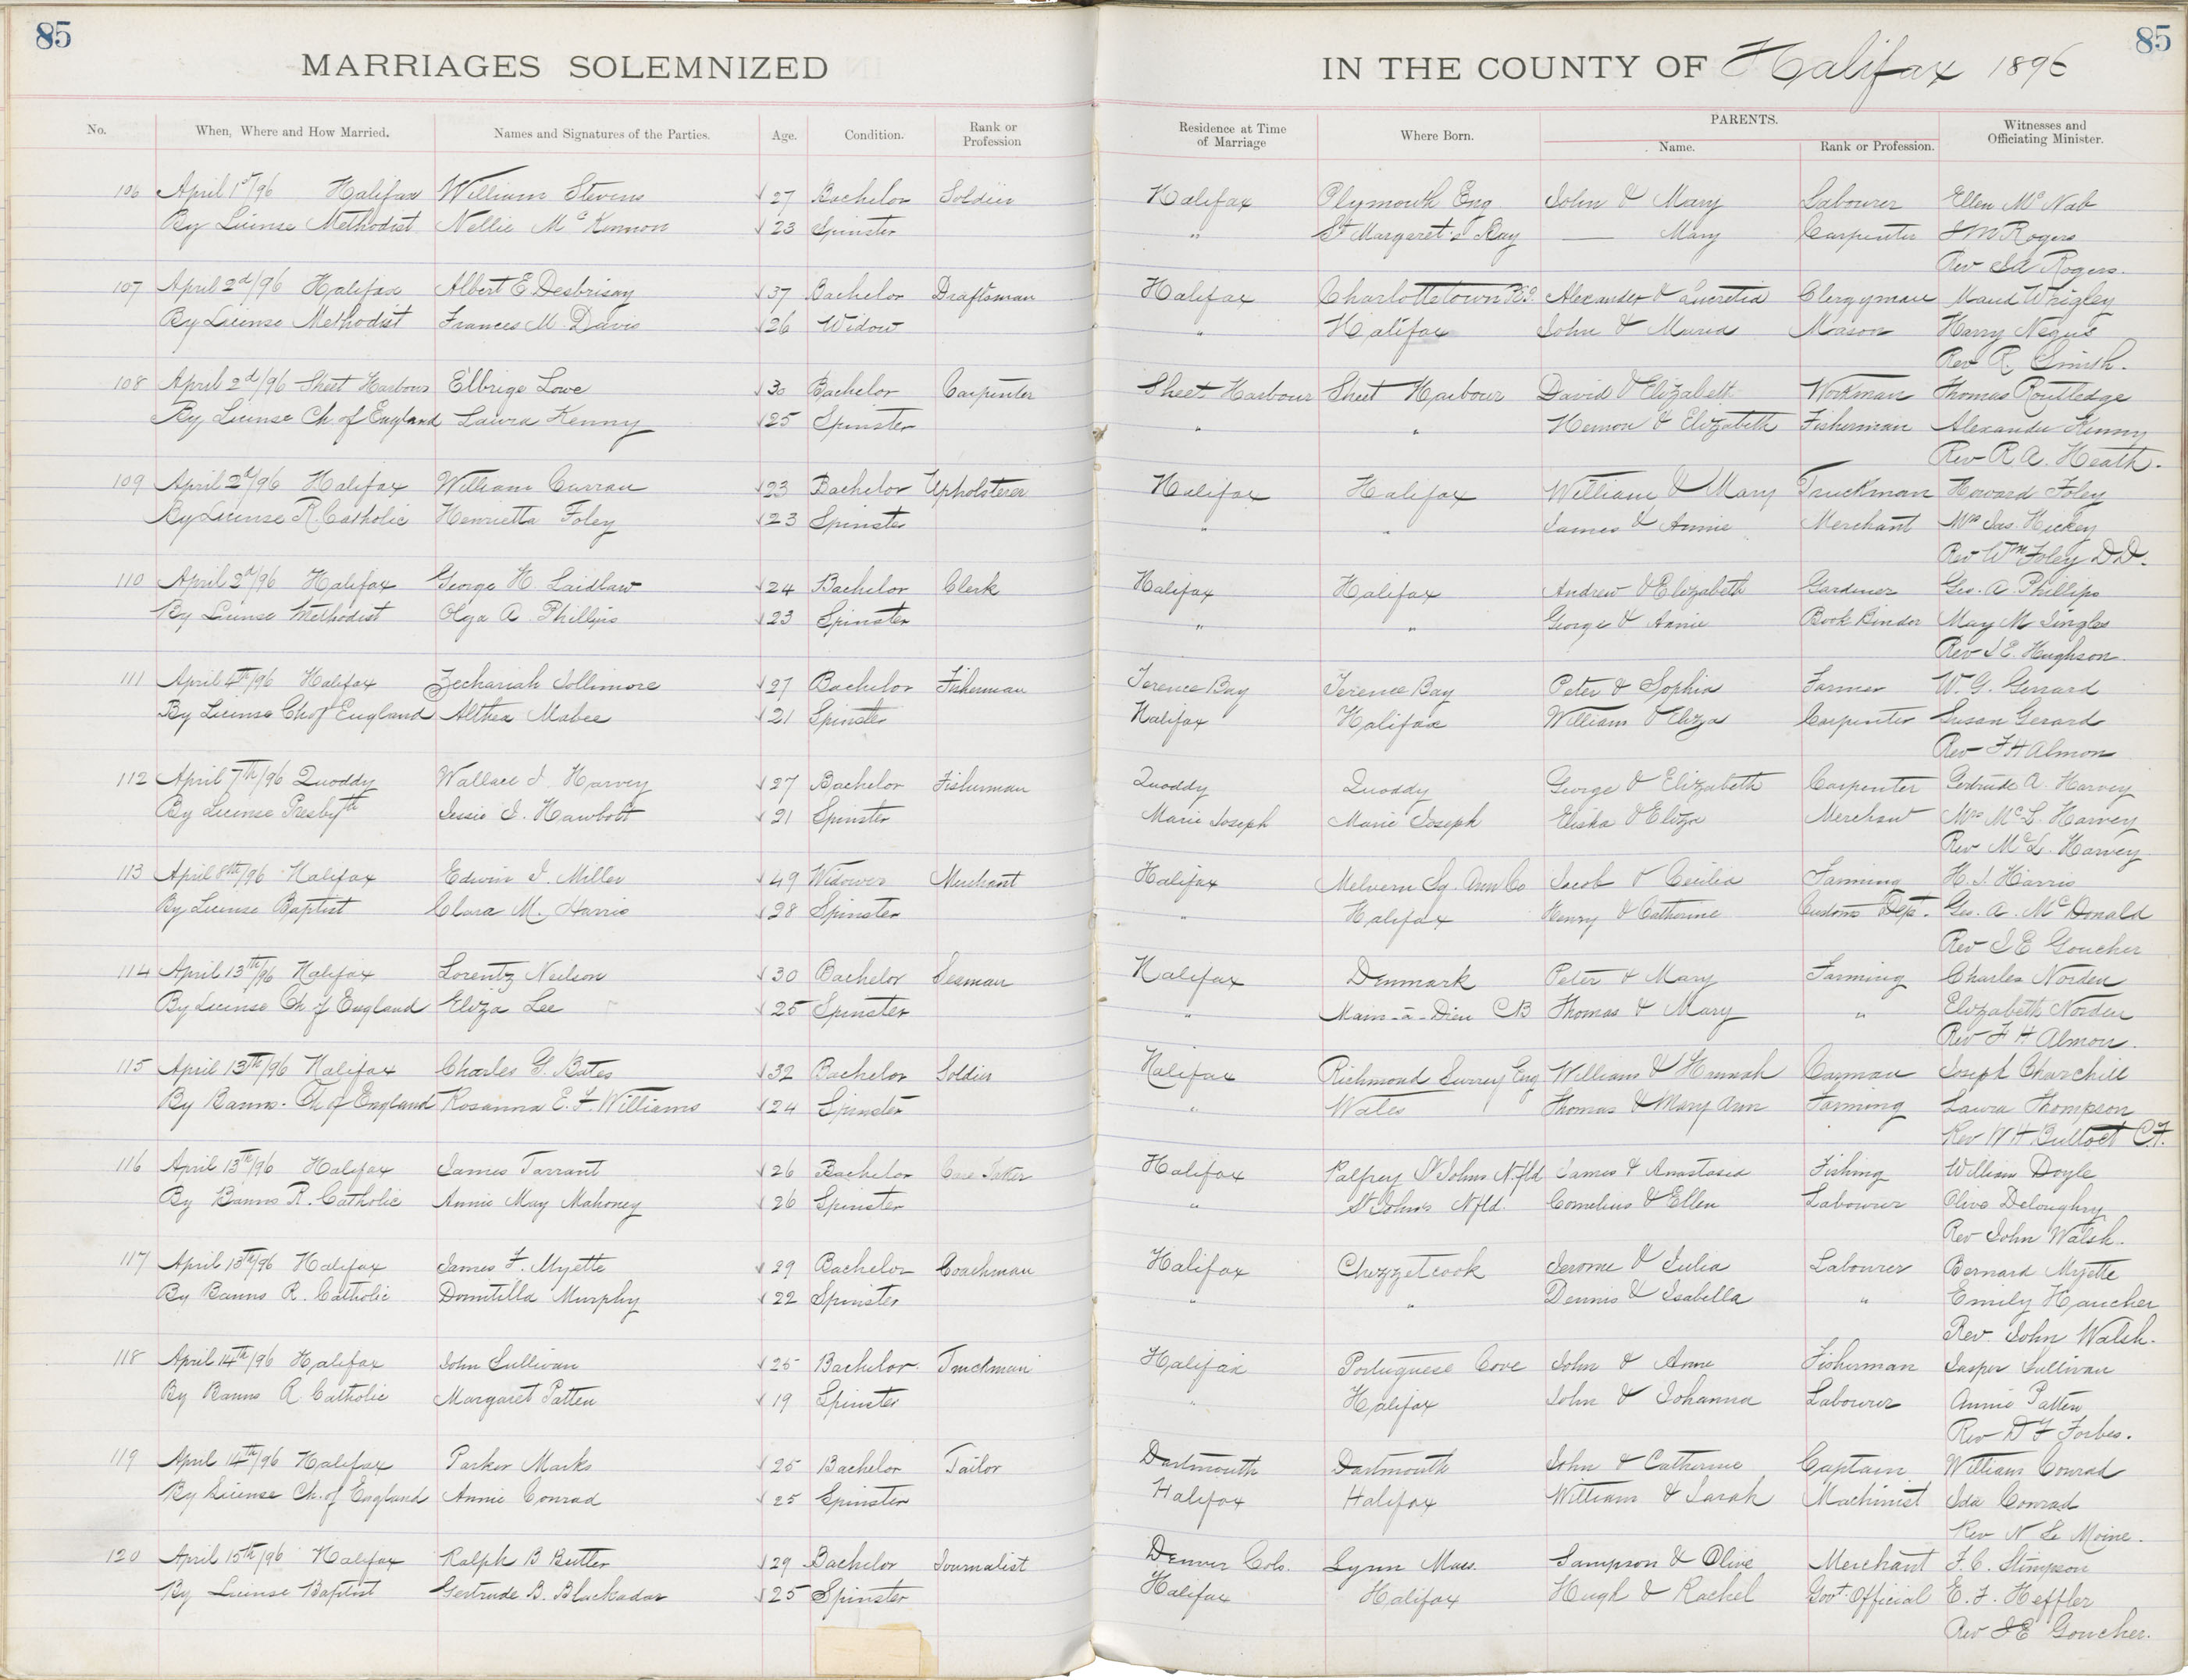 85
85
MARRIAGES SOLEMNIZED
IN THE COUNTY OF Halifax 1896
No. When, Where and How Married. Names and Signatures of the Parties. Age. Condition. Rank or Profession Residence at Time of Marriage Where Born. PARENTS. Name. Rank or Profession. Witnesses and Officiating Minister.
106 April 1st/96 Halifax William Stevens 27 Bachelor Soldier Halifax Plymouth Eng. John & Mary Labourer Ellen McNab
By License Methodist Nellie McKennon 23 Spinster " St Margaret's Bay — Mary Carpenter Rogers
Rev Rogers.
107 April 2d/96 Halifax Albert E Desbrisay 37 Bachelor Draftsman Halifax Charlottetown P.E.I. Alexander & Lucretia Clergyman Maud Whigley
By License Methodist Frances M. Davis 26 Widow " Halifax John & Maria Mason Harry Negus
Rev R. Smith.
108 April 2d/96 Sheet Harbour Elbrige Lowe 30 Bachelor Carpenter Sheet Harbour Sheet Harbour David & Elizabeth Workman Thomas Routledge
By License Ch. of England Laura Kenny 25 Spinster " " Hemon & Elizabeth Fisherman Alexander Kenny
Rev R A. Heath.
109 April 2d/96 Halifax William Curran 23 Bachelor Upholsterer Halifax Halifax William & Mary Truckman Howard Foley
By License R. Catholic Henrietta Foley 23 Spinster " " James & Annie Merchant Mrs Jas. Hickey
Rev Wm Foley D.D.
110 April 2d/96 Halifax George H. Laidlaw 24 Bachelor Clerk Halifax Halifax Andrew & Elizabeth Gardiner Geo. A. Phillips
By License Methodist Olga A Phillips 23 Spinster " " George & Annie Book Binder May M Singles
Rev J E. Hughson.
111 April 4th/96 Halifax Zechariah Sollimore 27 Bachelor Fisherman Terence Bay Terence Bay Peter & Sophia Farmer W. G. Gerrard
By License Ch of England Althea Mabee 21 Spinster Halifax Halifax William & Eliza Carpenter Susan Gerard
Rev F H Almon
112 April 7th/96 Quoddy Wallace J. Harvey 27 Bachelor Fisherman Quoddy Quoddy George & Elizabeth Carpenter Gertrude A. Harvey
By License Presbyth Jessie J. Hawbolt 21 Spinster Marie Joseph Marie Joseph Elisha & Eliza Merchant Mrs McL. Harvey
Rev McL. Harvey
113 April 8th/96 Halifax Edwin J. Miller 49 Widower Merchant Halifax Melvern Sq. Ann Co Jacob & Cecilia Farming H. J. Harris
By License Baptist Clara M. Harris 28 Spinster " Halifax Henry & Catherine Customs Dept. Geo. A. McDonald
Rev J E Goucher
114 April 13th/96 Halifax Lorentz Neilson 30 Bachelor Seaman Halifax Denmark Peter & Mary Farming Charles Norden
By License Ch. of England Eliza Lee 25 Spinster " Main-à-Dieu CB Thomas & Mary " Elizabeth Norden
Rev F H Almon.
115 April 13th/96 Halifax Charles G. Bates 32 Bachelor Soldier Halifax Richmond Surrey Eng William & Hannah Carman Joseph Churchill
By Banns. Ch. of England Rosanna E. F. Williams 24 Spinster " Wales Thomas & Mary Ann Farming Laura Thompson
Rev W H Bullock C.F.
116 April 13th/96 Halifax James Tarrant 26 Bachelor Care Taker Halifax Palfrey St Johns Nfld James & Anastasia Fishing William Doyle
By Banns R. Catholic Annie May Mahoney 26 Spinster " St John's Nfld. Cornelius & Ellen Labourer Olive Deloughry
Rev John Walsh.
117 April 13th/96 Halifax James F. Myette 29 Bachelor Coachman Halifax Chezzetcook Jerome & Julia Labourer Bernard Myette
By Banns R. Catholic Domitilla Murphy 22 Spinster " " Dennis & Isabella " Emily Haucher
Rev. John Walsh.
118 April 14th/96 Halifax John Sullivan 25 Bachelor Truckman Halifax Portuguese Cove John & Anne Fisherman Jasper Sullivan
By Banns R. Catholic Margaret Patten 19 Spinster " Halifax John & Johanna Labourer Annie Patten
Rev D F Forbes.
119 April 14th/96 Halifax Parker Marks 25 Bachelor Tailor Dartmouth Dartmouth John & Catherine Captain William Conrad
By License Ch. of England Annie Conrad 25 Spinster Halifax Halifax William & Sarah Machinist Ida Conrad
Rev N Le Moine.
120 April 15th/96 Halifax Ralph B Butler 29 Bachelor Journalist Denver Colo. Lynn Mass. Sampson & Olive Merchant F. C. Stimpson
By License Baptist Gertrude B. Blackadar 25 Spinster Halifax Halifax Hugh & Rachel Govt. Official E. F. Heffler
Rev J E Goucher.